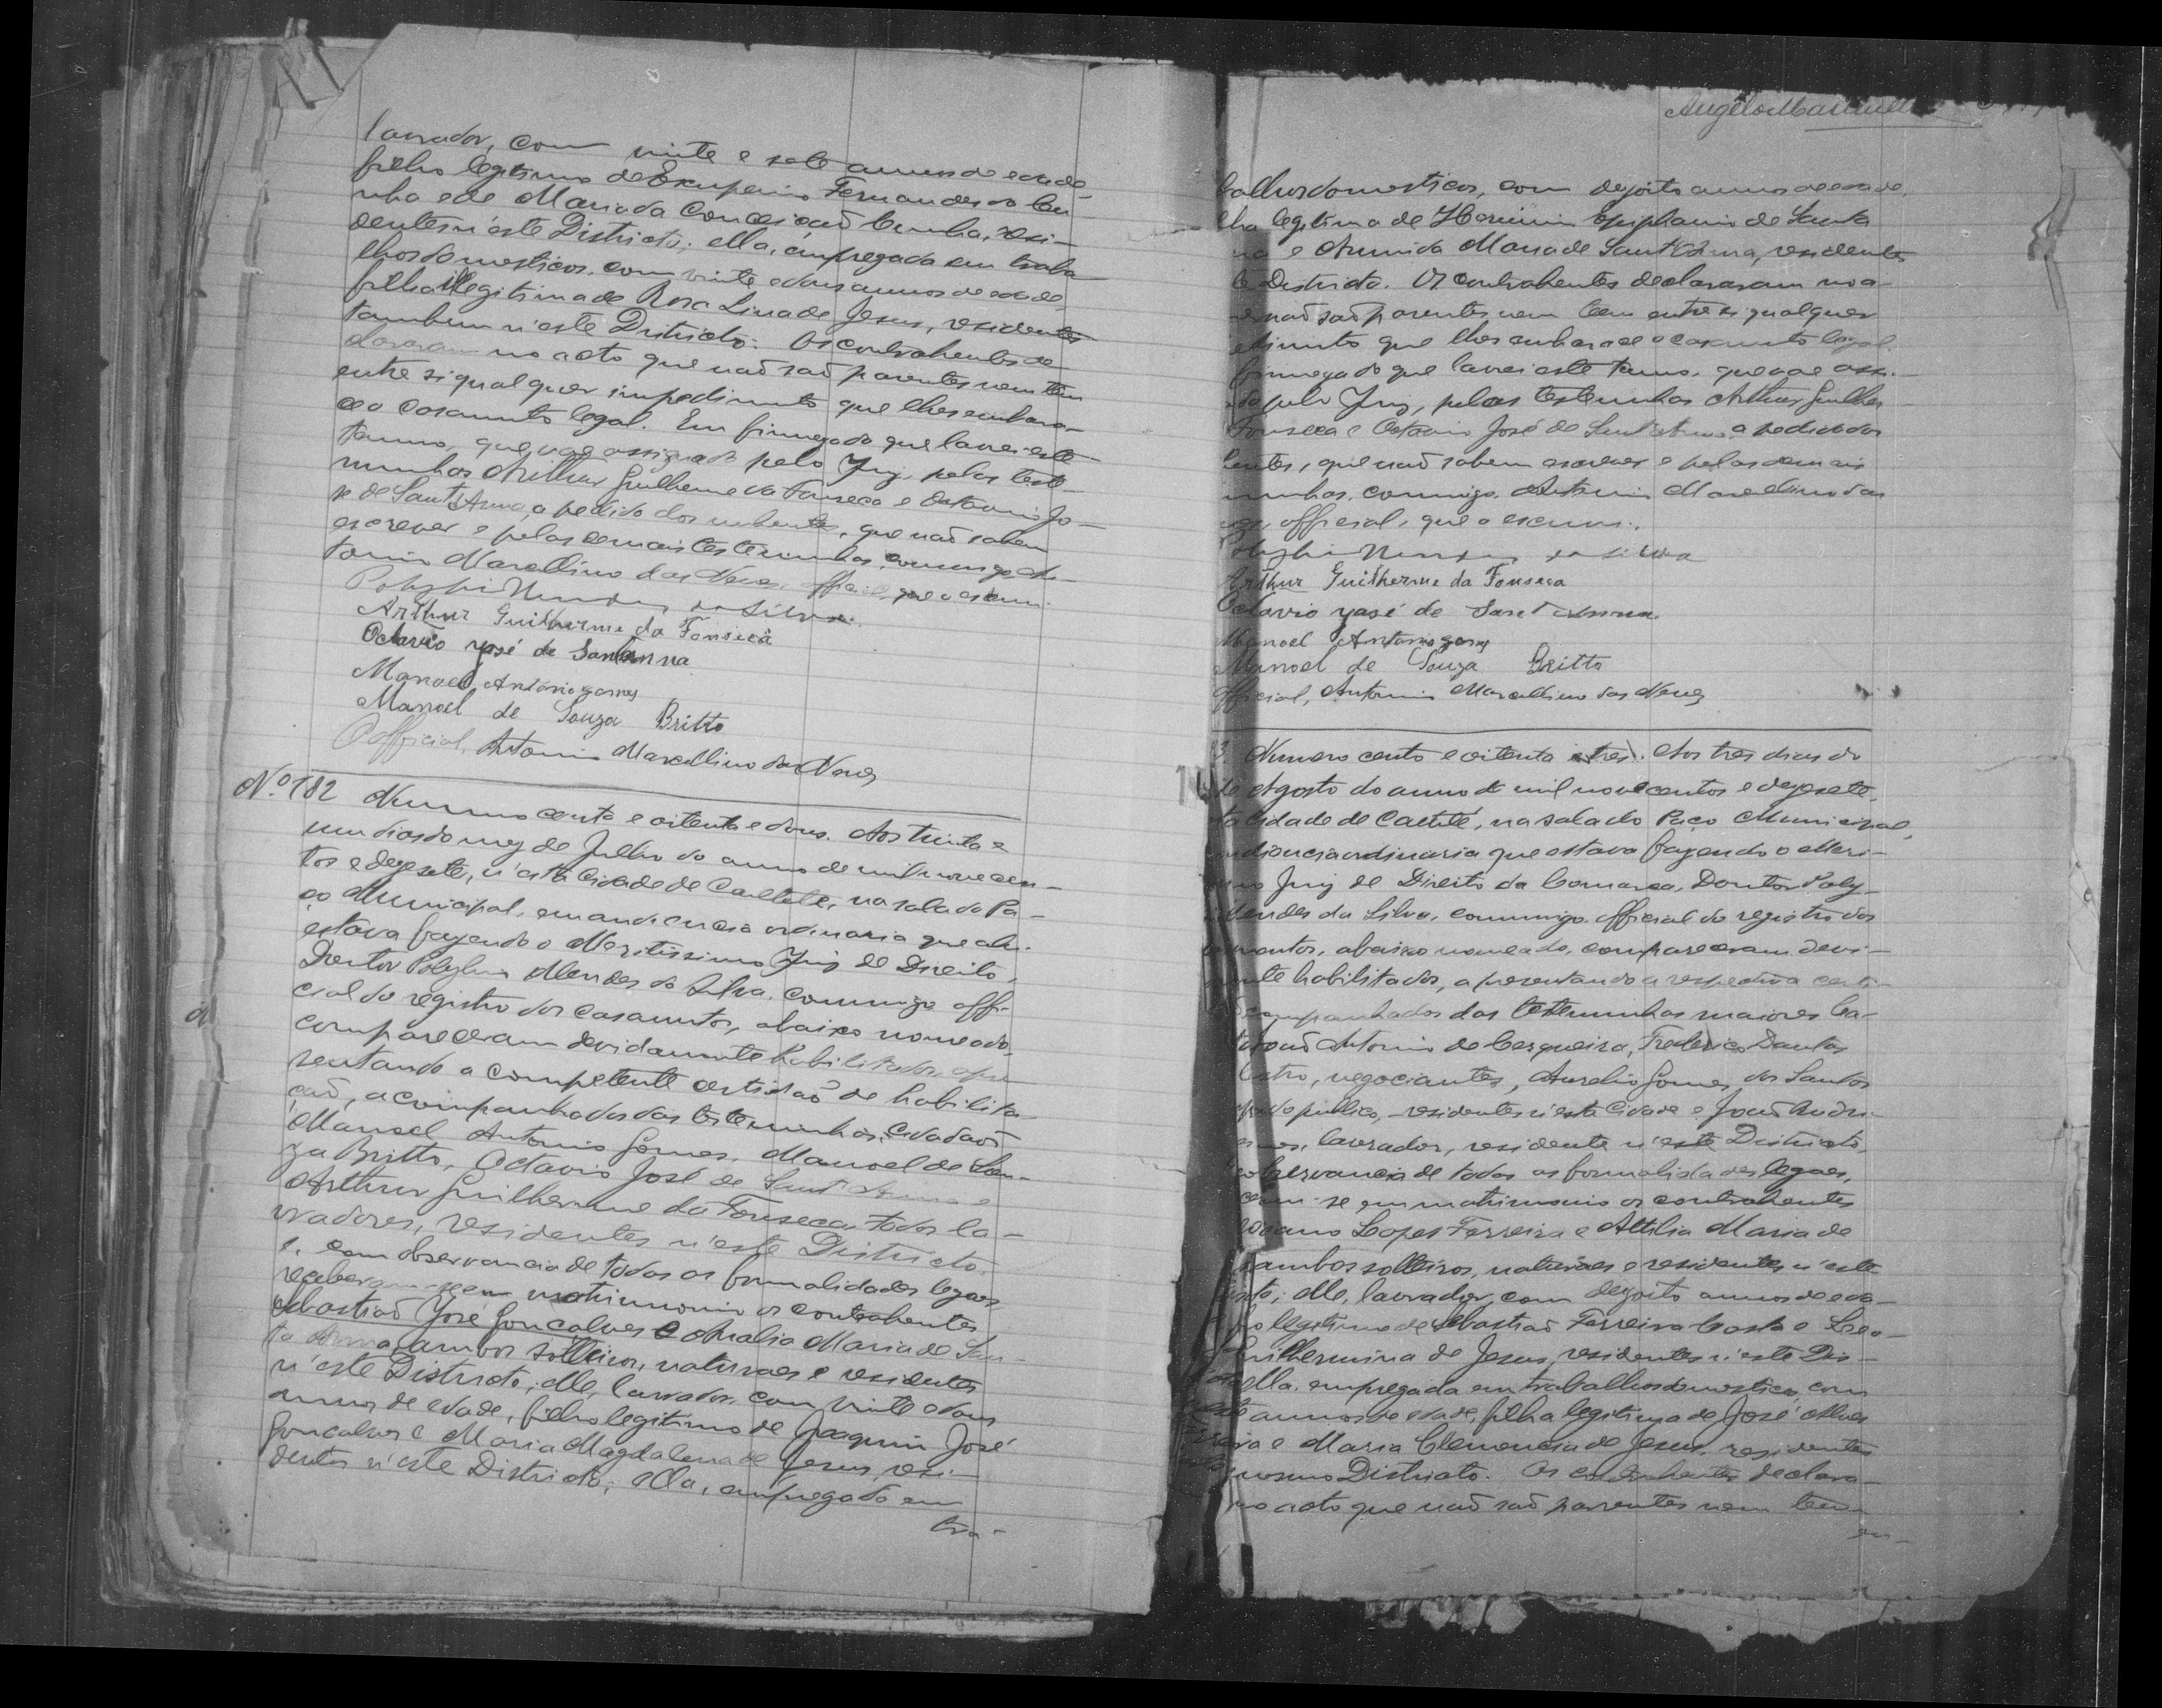 lavrador, com vinte e sete annos de edade
filho legitimo de Exuperio Fernandes da Cu
nha e de Maria da Conceicaõ Cunha, resi-
dentes n'este Districto; ella, empregada em traba
lhos domesticos, com vinte e dous annos de edade,
filha illegitima de Rosa Lina de Jesus, residentes
tambem n'este Districto. Os contrahentes de
clararam no acto que naõ saõ parentes nem têm
entre si qualquer impedimento que lhes embara-
ce o casamento legal. Em firmeza do que lavrei este
termo, que vae assignado pelo Juiz, pelas teste-
munhas Arthur Guilherme da Fonseca e Octavio Jo-
sé de Sant'Anna, a pedido dos nubentes, que naõ sabem
escrever e pelas demais testemunhas, commigo, An-
tonio Marcellino das Neves, official, que o escrevi.
Polybio Mendes da Silva.
Arthur Guilherme da Fonseca
Octavio yosé de Santanna
Manoel Antonio gomes
Manoel de Souza Britto
O official, Antonio Marcellino das Neves
Nº 182 Numero cento e oitenta e dous. Aos trinta e
um dias do mez de Julho do anno de mil nove cen-
tos e dezesete, n'esta Cidade de Caeteté, na sala do Pa-
ço Municipal, em audiencia ordinaria que ahi
estava fazendo o Meritissimo Juiz de Direito,
Doutor Polybio Mendes da Silva, commigo offi-
cial do registro dos casamentos, abaixo nomeado,
compareceram devidamente habilitados, apre
sentando a competente certidaõ de habilita-
çaõ, acompanhados das testemunhas, Cidadaõs
Manoel Antonio Gomes, Manoel de Sou-
za Britto, Octavio José de Sant'Anna e
Arthur Guilherme da Fonseca, todos la-
vradores, residentes n'este Districto,
e, com observancia de todas as formalidades legaes,
receberam-se em matrimonio os contrahentes
Sebastiaõ José Gonçalves e Analia Maria de San-
ta Anna, ambos solteiros, naturaes e residentes
n'este Districto; elle, lavrador, com vinte e dous
annos de edade, filho legitimo de Joaquim José
Gonçalves e Maria Magdalena de Jesus, resi-
dentes n'este Districto; ella, empregada em
tra-
Angelo Manoel
balhos domesticos, com dezoito annos de edade,
lha legitima de Herminio Epiphanio de Santa
na e Arminda Maria de Sant'Anna, residentes
te Districto. Os contrahentes declararam no a-
naõ saõ parentes nem tem entre si qualquer
edimento que lhes embarace o casamento legal.
firmeza do que lavrei este termo, que vae assi-
do pelo Juiz, pelas testemunhas Arthur Guilher
Fonseca e Octavio José de Sant'Anna, a pedido dos
hentes, que naõ sabem escrever e pelas demais
munhas, commigo, Antonio Marcellino das
ves, official, que o escrevi.
Polybio Mendes da Silva
Arthur Guilherme da Fonseca
Octavio yosé de Sant Anna
Manoel Antonio gomes
Manoel de Souza Britto
official, Antonio Marcellino das Neves
3 Numero cento e oitenta e tres. Aos tres dias do
de Agosto do anno de mil nove centos e dezesete,
ta Cidade de Caeteté, na sala do Paço Municipal,
udiencia ordinaria que estava fazendo o Meri-
mo Juiz de Direito da Comarca, Doutor Poly-
Mendes da Silva, commigo official do registro dos
mentos, abaixo nomeado, compareceram devi-
mente habilitados, apresentando a respectiva certi-
companhados das testemunhas maiores Ca-
Antonio de Cerqueira, Frederico Dantas
Castro, negociantes, Aurelio Gomes dos Santos
publico, residentes n'esta Cidade e Joaõ Rodri-
lavrador, residente n'este Districto,
observancia de todas as formalidades legaes,
ram-se em matrimonio os contrahentes
Lopes Ferreira e Attilia Maria de
ambos solteiros, naturaes e residentes n'este
cto; elle, lavrador, com dezoito annos de eda-
lho legitimo de Sebastiaõ Ferreira Costa e Leo-
Guilhermina de Jesus, residentes n'este Dis-
ella, empregada em trabalhos domesticos, com
annos de edade, filha legitima de José Alves
e Maria Clemencia de Jesus, residentes
mesmo Districto. Os contrahentes declara-
no acto que naõ saõ parentes nem tem
en-